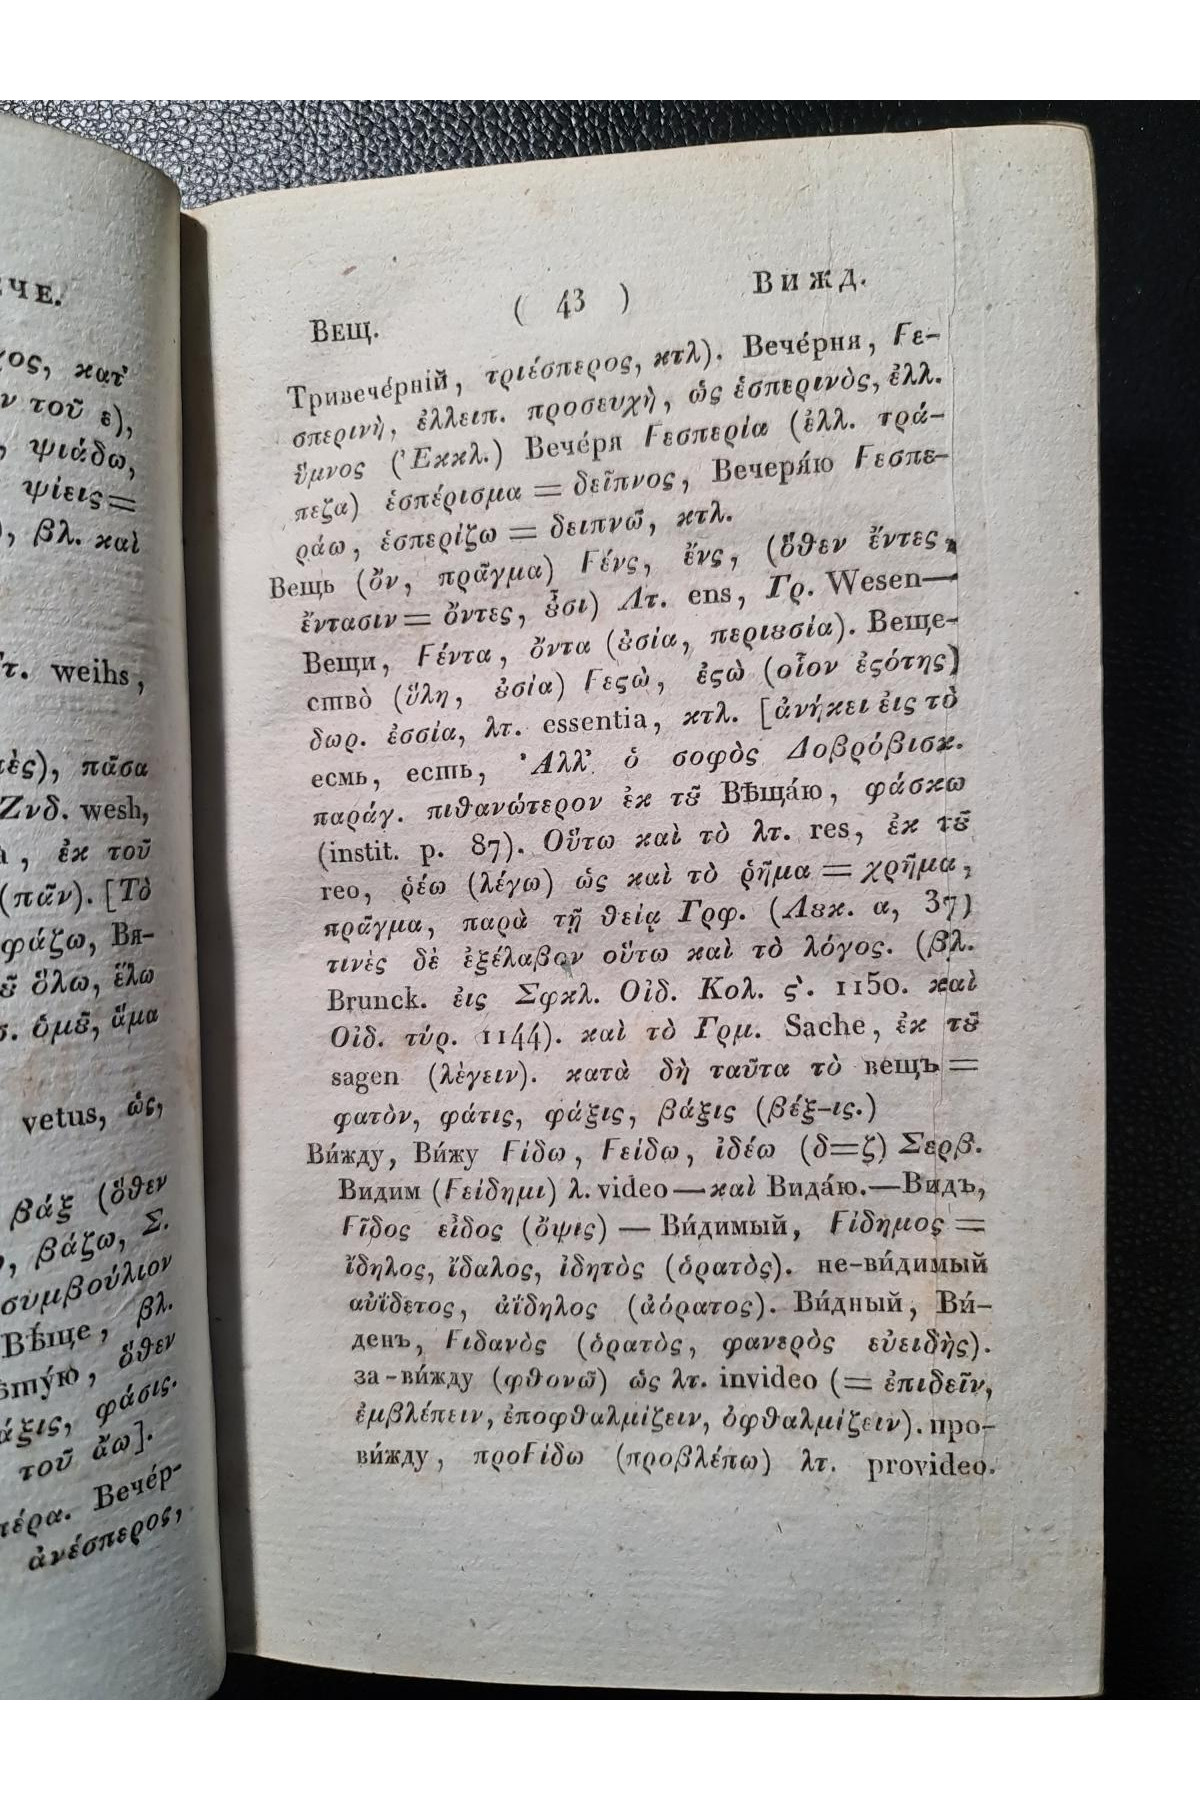 ЕЧЕ.
χος, κατ'
ν τοῦ ε),
, ψιάδω,
ψίεις=
), βλ. καὶ
Γτ. weihs,
πὲς), πᾶσα
Ζνδ. wesh,
, ἐκ τοῦ
(πᾶν). [Τὸ
φάζω, Вя-
ȣ̃ ὅλω, ἕλω
σ. ὁμȣ̃, ἅμα
vetus, ὡς,
βάξ (ὅθεν
, βάζω, Σ.
συμβούλιον
Вѣще, βλ.
ѣтýю, ὅθεν
άξις, φάσις.
τοῦ ἄω].
πέρα. Вечéр-
ἀνέσπερος,
Вещ.
( 43 )
Вижд.
Тривечéрній, τριέσπερος, κτλ). Вечéрня, Ϝε-
σπερινὴ, ἐλλειπ. προσευχὴ, ὡς ἑσπερινὸς, ἐλλ.
ὕμνος (Ἐκκλ.) Вечéря Ϝεσπερία (ἐλλ. τρά-
πεζα) ἑσπέρισμα = δεῖπνος, Вечеря́ю Ϝεσπε-
ράω, ἑσπερίζω = δειπνῶ, κτλ.
Вещь (ὂν, πρᾶγμα) Ϝένς, ἔνς, (ὅθεν ἔντες,
ἔντασιν = ὄντες, ȣ̓͂σι) Λτ. ens, Γρ. Wesen—
Вещи, Ϝέντα, ὄντα (ȣ̓σία, περιȣσία). Веще-
ствò (ὕλη, ȣ̓σία) Ϝεϛὼ, ἐϛὼ (οἷον ἐϛότης)
δωρ. ἐσσία, λτ. essentia, κτλ. [ἀνήκει εἰς τὸ
есмь, есть, Ἀλλ' ὁ σοφὸς Δοβρόβισκ.
παράγ. πιθανώτερον ἐκ τȣ̃ Вѣщáю, φάσκω
(instit. p. 87). Οὕτω καὶ τὸ λτ. res, ἐκ τȣ̃
reo, ῥέω (λέγω) ὡς καὶ τὸ ῥῆμα = χρῆμα,
πρᾶγμα, παρὰ τῇ θείᾳ Γρφ. (Λȣκ. α, 37)
τινὲς δὲ ἐξέλαβον οὕτω καὶ τὸ λόγος. (βλ.
Brunck. εἰς Σφκλ. Οἰδ. Κολ. ϛ'. 1150. καὶ
Οἰδ. τύρ. 1144). καὶ τὸ Γρμ. Sache, ἐκ τȣ̃
sagen (λὲγειν). κατὰ δὴ ταῦτα τὸ вещъ =
φατὸν, φάτις, φάξις, βάξις (βέξ-ις.)
Ви́жду, Ви́жу Ϝίδω, Ϝείδω, ἰδέω (δ=ζ) Σερβ.
Видим (Ϝείδημι) λ. video — καὶ Видáю.—Видъ,
Ϝῖδος εἶδος (ὄψις) — Ви́димый, Ϝίδημος =
ἴδηλος, ἴδαλος, ἰδητὸς (ὁρατὸς). не-ви́димый
αὐΐδετος, ἀΐδηλος (ἀόρατος). Ви́дный, Ви́-
денъ, Ϝιδανὸς (ὁρατὸς, φανερὸς εὐειδὴς).
за-ви́жду (φθονῶ) ὡς λτ. invideo (= ἐπιδεῖν,
ἐμβλέπειν, ἐποφθαλμίζειν, ὀφθαλμίζειν). про-
ви́жду, προϜίδω (προβλέπω) λτ. provideo.